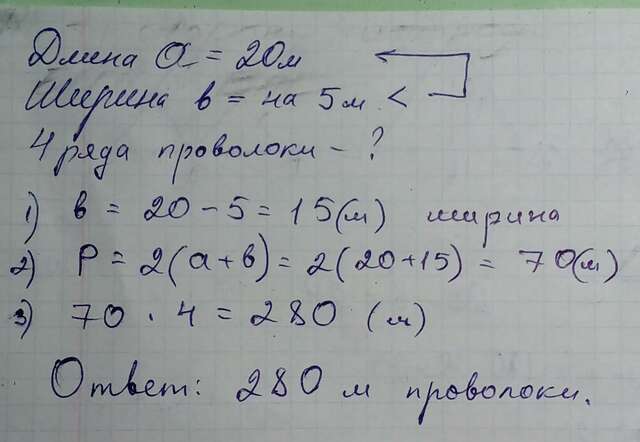 Длина a = 20м
Ширина в = на 5м <
4 ряда проволоки – ?
1) в = 20 – 5 = 15(м) ширина
2) P = 2(а+в) = 2(20+15) = 70(м)
3) 70 · 4 = 280 (м)
Ответ: 280 м проволоки.